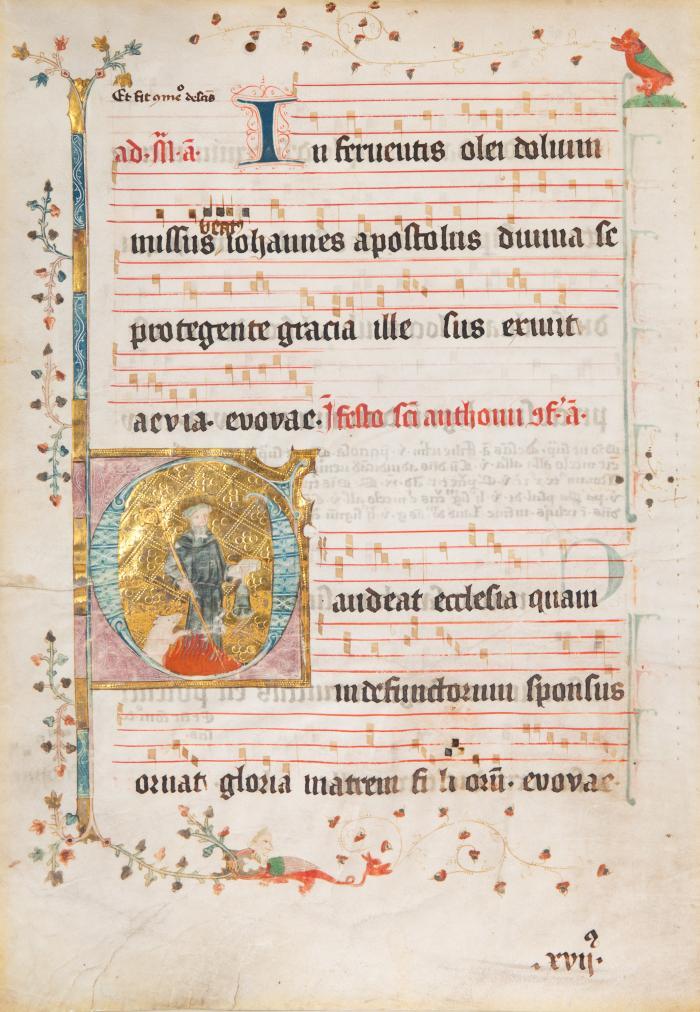 Et fit
ad · M · ā · In feruentis olei dolium
uerit
missus iohannes apostolus diuina se
protegente gracia ille sus exiuit
aevia · evovae · festo sci anthonii
Gaudeat ecclesia quam
in defunctorum sponsus
ornat gloria matrem fi li orū · evovae ·
· xvij ·